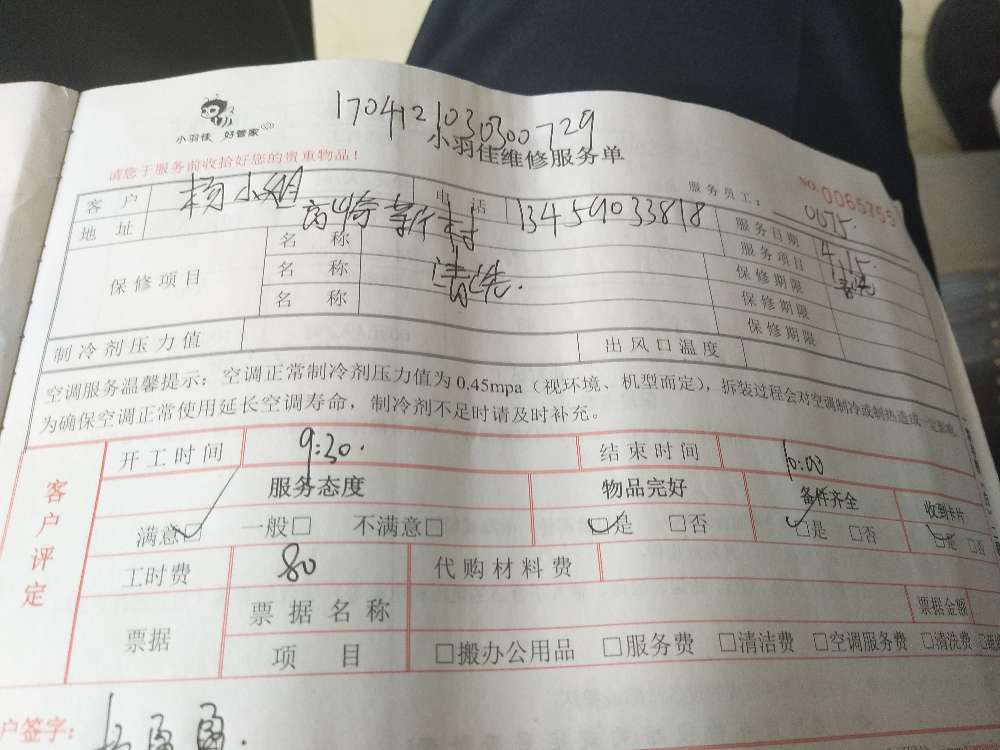 1704121030300729
小羽佳 好管家
小羽佳维修服务单
请您于服务前收拾好您的贵重物品！
服务员工： 0075.
NO. 0065755
客 户 杨小姐 电 话 13459033818 服务日期 4.15.
地 址 高崎新村 服务项目 清洗
保修项目 名 称 清洗. 保修期限
名 称 保修期限
名 称 保修期限
制冷剂压力值 出风口温度
空调服务温馨提示：空调正常制冷剂压力值为0.45mpa（视环境、机型而定），拆装过程会对空调制冷或制热造成一定影响，
为确保空调正常使用延长空调寿命，制冷剂不足时请及时补充。
客户评定
开工时间 9:30. 结束时间 10:00
服务态度 物品完好 备件齐全 收到卡片
满意☑ 一般□ 不满意□ ☑是 □否 ☑是 □否 ☑是 □否
工时费 80 代购材料费
票据 票据名称 票据金额
项 目 □搬办公用品 □服务费 □清洁费 □空调服务费 □清洗费
户签字：